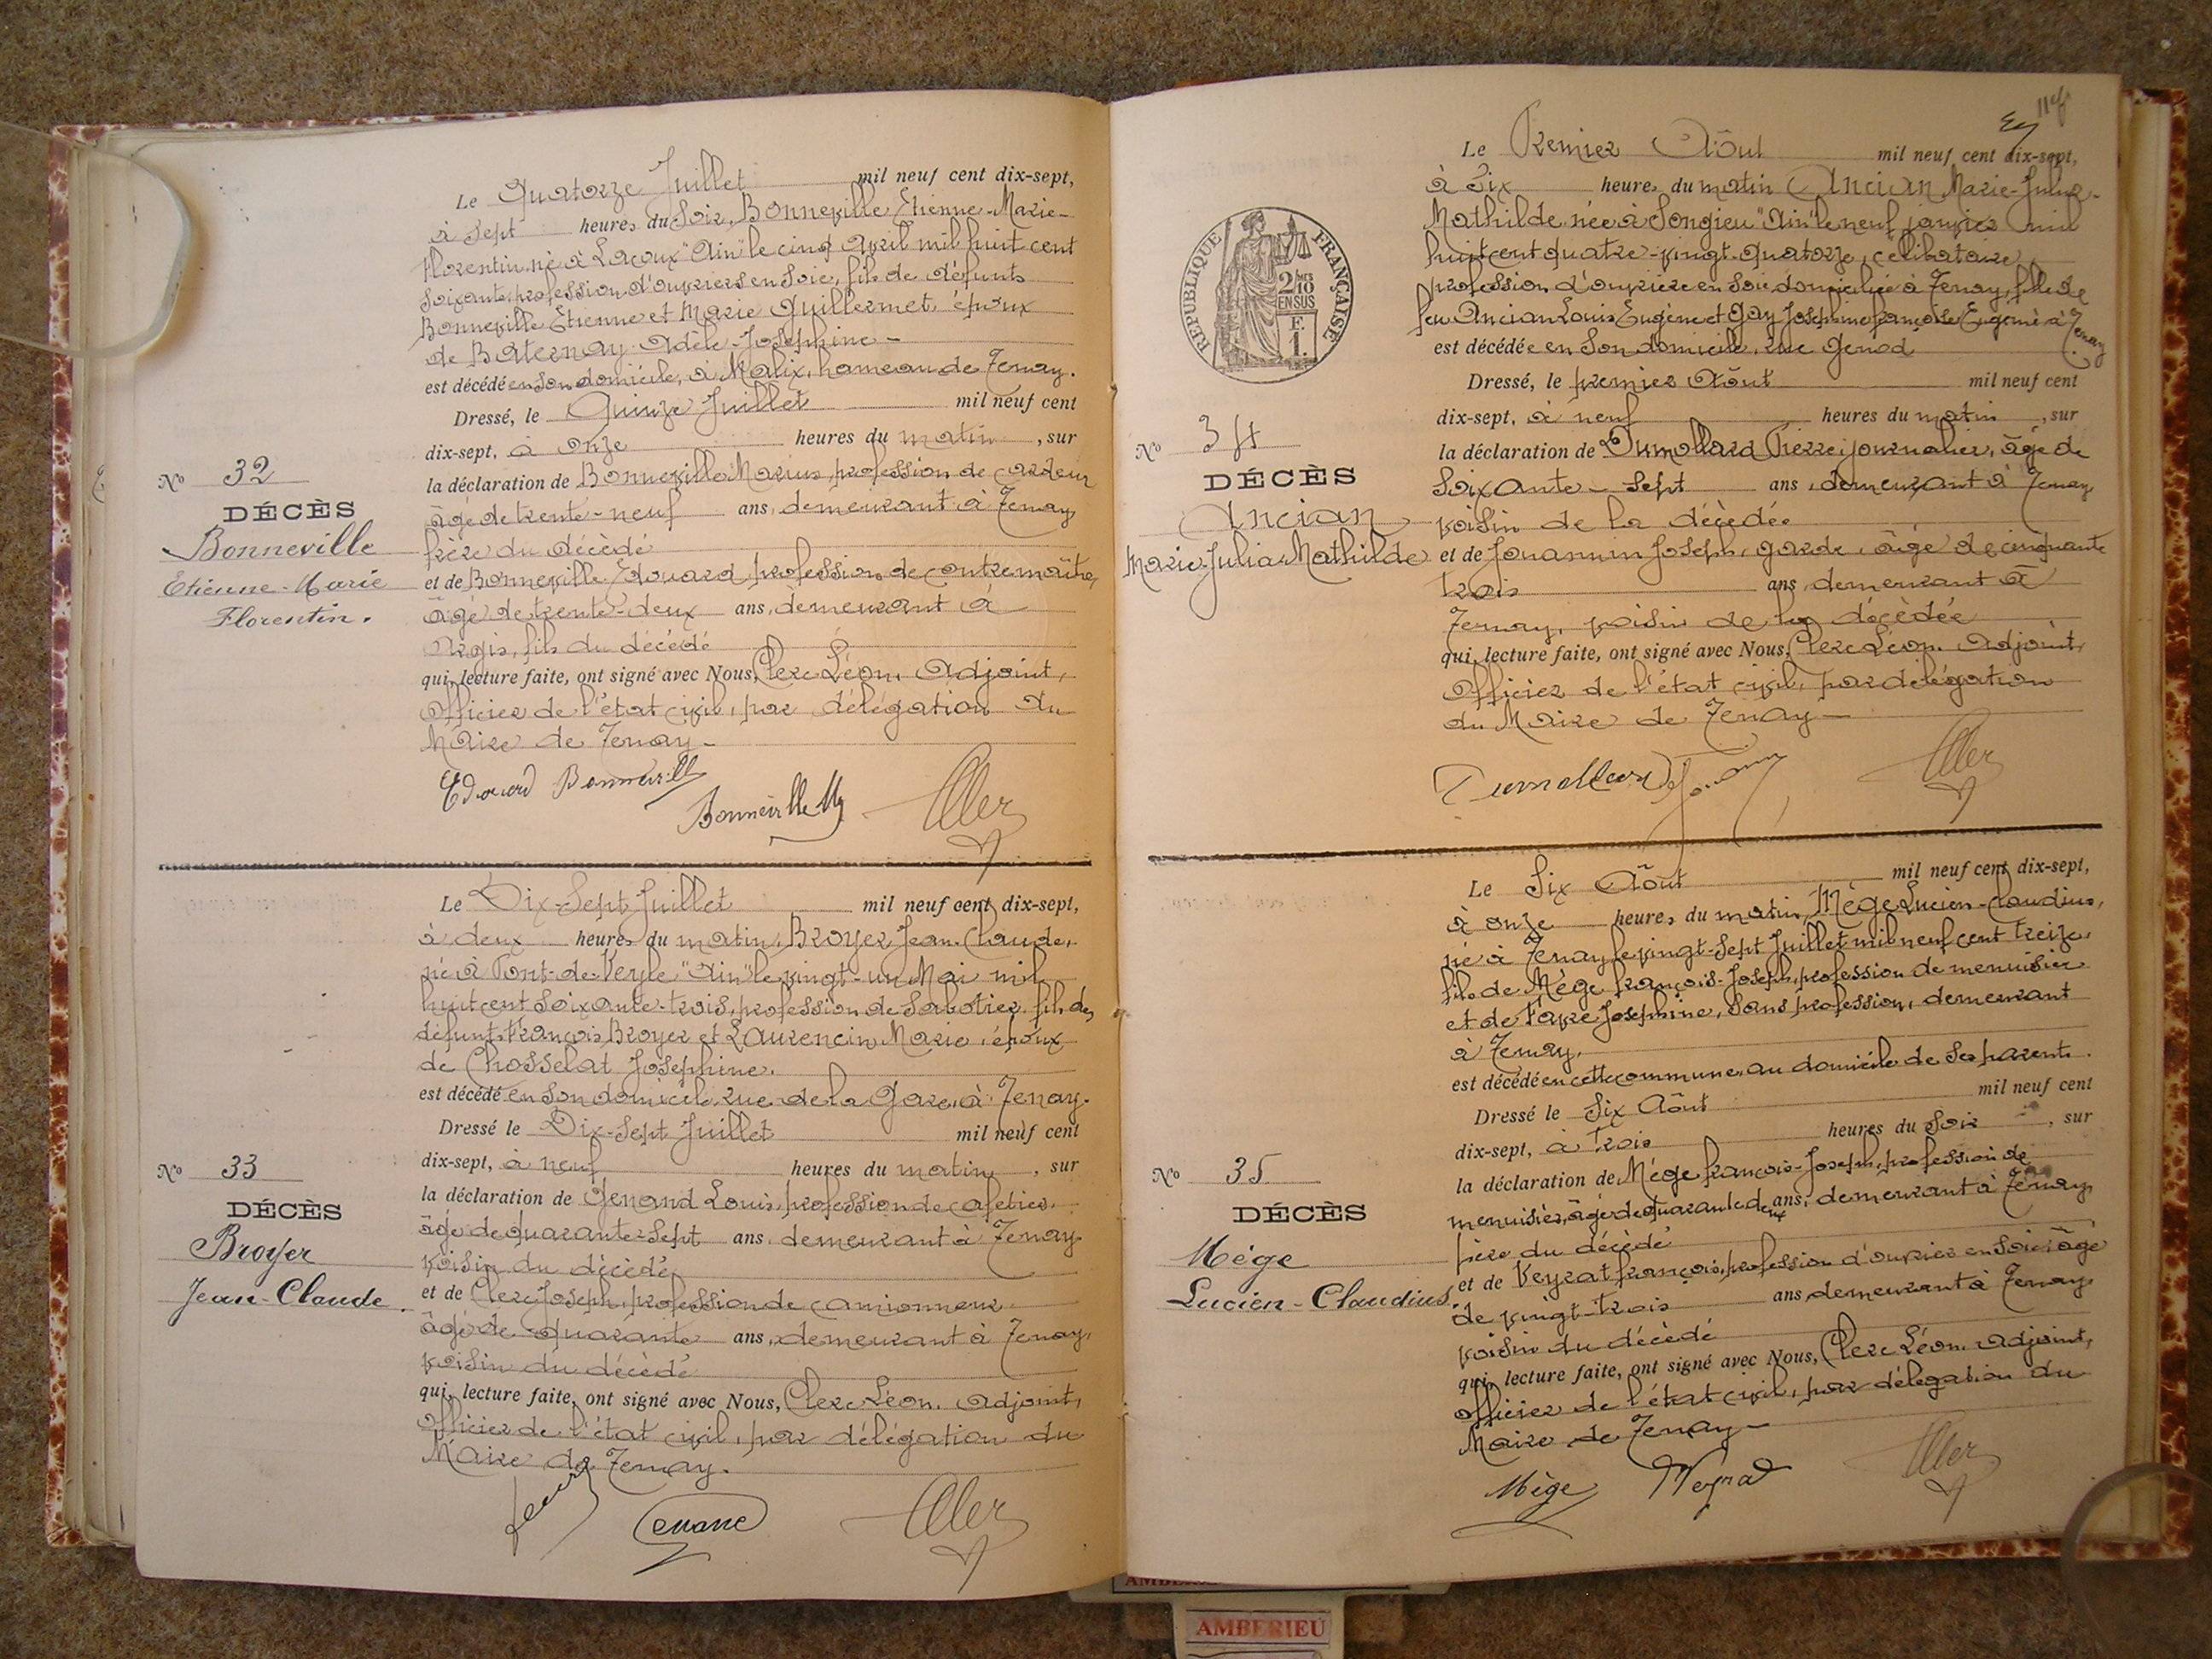 Le Quatorze Juillet mil neuf cent dix-sept,
à Sept heures du Soir, Bonneville Etienne-Marie-
Florentin, né à Lacoux "Ain" le cinq Avril mil huit cent
soixante, profession d'ouvriers en Soie, fils de défunts
Bonneville Etienne et Marie Guillermet, époux
de Baternay Adèle-Joséphine -
est décédé en Son domicile, à Malix, hameau de Tenay.
Dressé, le Quinze Juillet mil neuf cent
dix-sept, à onze heures du matin, sur
la déclaration de Bonneville Marius, profession de cardeur
âgé de trente-neuf ans, demeurant à Tenay
frère du décédé
et de Bonneville Edouard, profession de contremaître,
âgé de trente-deux ans, demeurant à
Argis, fils du décédé
qui, lecture faite, ont signé avec Nous, Clerc Léon, Adjoint,
Officier de l'état civil, par délégation du
Maire de Tenay -
No 32
DÉCÈS
Bonneville
Etienne-Marie
Florentin.
Edouard Bonneville
Bonneville M
Le Dix-Sept Juillet mil neuf cent dix-sept,
à deux heures du matin, Broyer Jean-Claude,
né à Pont-de-Veyle "Ain" le vingt-un Mai mil
huit cent soixante-trois, profession de Sabotier, fils des
défunts François Broyer et Laurencin Marie, époux
de Chosselat Joséphine.
est décédé en Son domicile, rue de la Gare, à Tenay.
Dressé le Dix-Sept Juillet mil neuf cent
dix-sept, à neuf heures du matin, sur
la déclaration de Genand Louis, profession de cafetier,
âgé de quarante-sept ans, demeurant à Tenay
voisin du décédé
et de Clerc Joseph, profession de camionneur
âgé de quarante ans, demeurant à Tenay,
voisin du décédé
qui, lecture faite, ont signé avec Nous, Clerc Léon, Adjoint,
Officier de l'état civil, par délégation du
Maire de Tenay.
No 33
DÉCÈS
Broyer
Jean-Claude.
Le Premier Aôut mil neuf cent dix-sept,
à Six heures du matin Ancian Marie-Julia-
Mathilde née à Songieu "Ain" le neuf janvier mil
huit cent quatre-vingt-quatorze, célibataire,
profession d'ouvrière en Soie domiciliée à Tenay, fille de
feu Ancian Louis Eugène et Gay Joséphine Françoise Eugénie à Tenay
est décédée en Son domicile, rue Genod
Dressé, le premier Aôut mil neuf cent
dix-sept, à neuf heures du matin, sur
la déclaration de Dumollard Pierre, journalier, âgé de
Soixante-Sept ans, demeurant à Tenay
voisin de la décédée
et de Jouannin Joseph, garde, âgé de cinquante
trois ans, demeurant à
Tenay, voisin de la décédée
qui, lecture faite, ont signé avec Nous, Clerc Léon, Adjoint,
Officier de l'état civil, par délégation
du Maire de Tenay -
RÉPUBLIQUE FRANÇAISE
2/10
EN SUS
F.
1.
No 34
DÉCÈS
Ancian
Marie-Julia Mathilde
Dumollard
Le Six Aôut mil neuf cent dix-sept,
à onze heures du matin, Mège Lucien-Claudius,
né à Tenay le vingt-sept Juillet mil neuf cent treize,
fils de Mège François-Joseph, profession de menuisier
et de Favre Joséphine, Sans profession, demeurant
à Tenay,
est décédé en cette commune, au domicile de Ses parents.
Dressé le Six Aôut mil neuf cent
dix-sept, à trois heures du Soir, sur
la déclaration de Mège François-Joseph, profession de
menuisier, âgé de quarante deux ans, demeurant à Tenay,
père du décédé
et de Veyrat François, profession d'ouvrier en Soie, âgé
de vingt-trois ans, demeurant à Tenay
voisin du décédé
qui, lecture faite, ont signé avec Nous, Clerc Léon, Adjoint,
Officier de l'état civil, par délégation du
Maire de Tenay -
No 35
DÉCÈS
Mège
Lucien-Claudius.
Mège
Veyrat
AMBERIEU